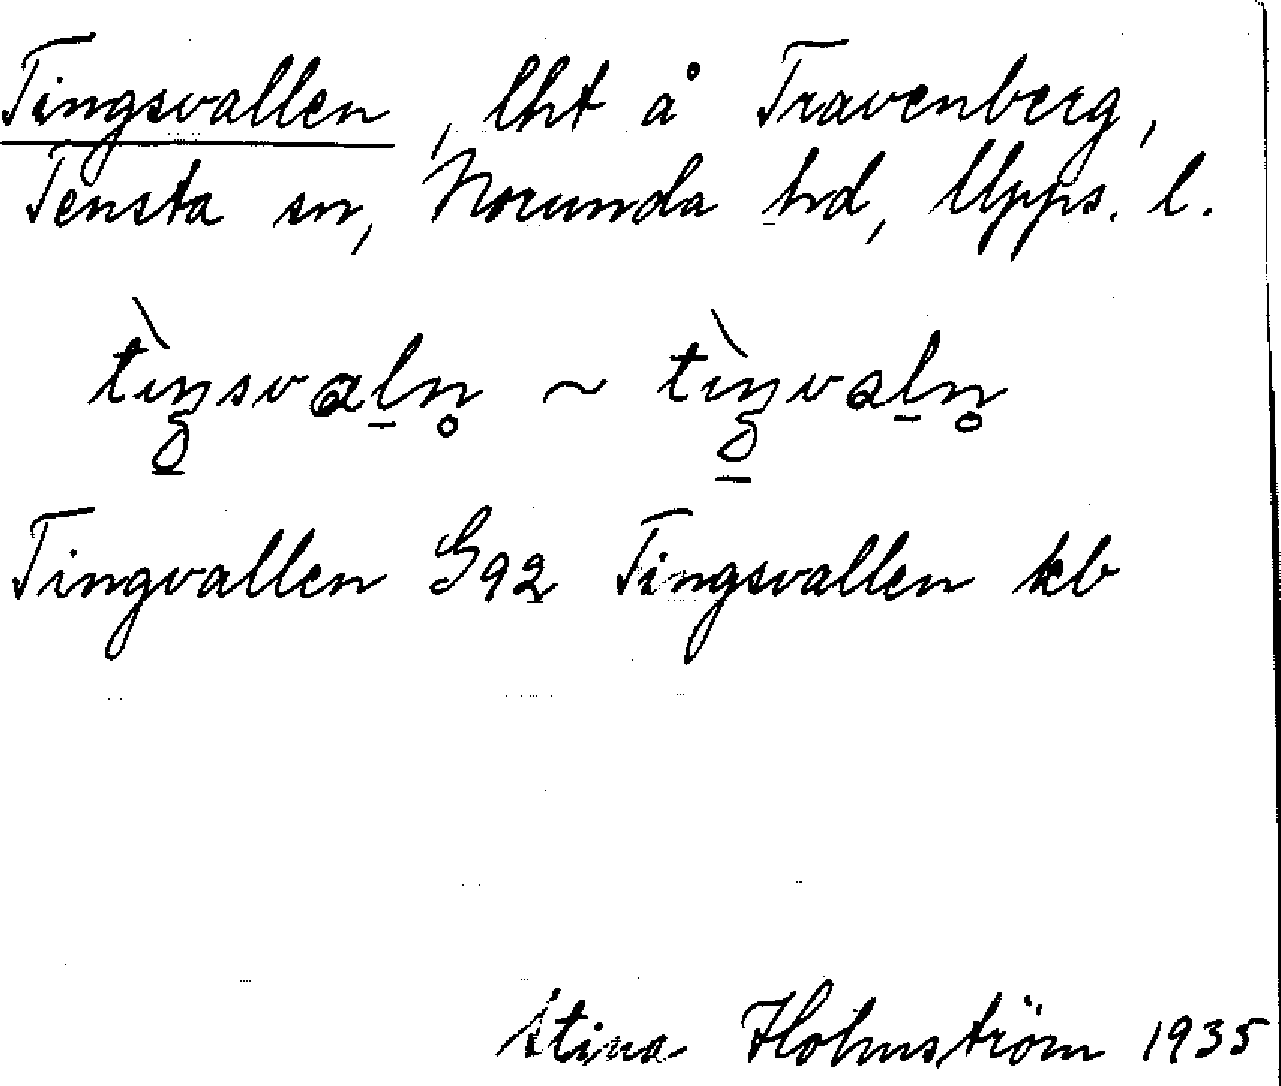 Tingsvallen, lht å Travenberg,
Tensta sn, Norunda hd, Upps. l.
tı̀ŋsvaḻn̥ ~ tı̀ŋvaḻn̥
Tingvallen G92 Tingsvallen kb
Stina Holmström 1935